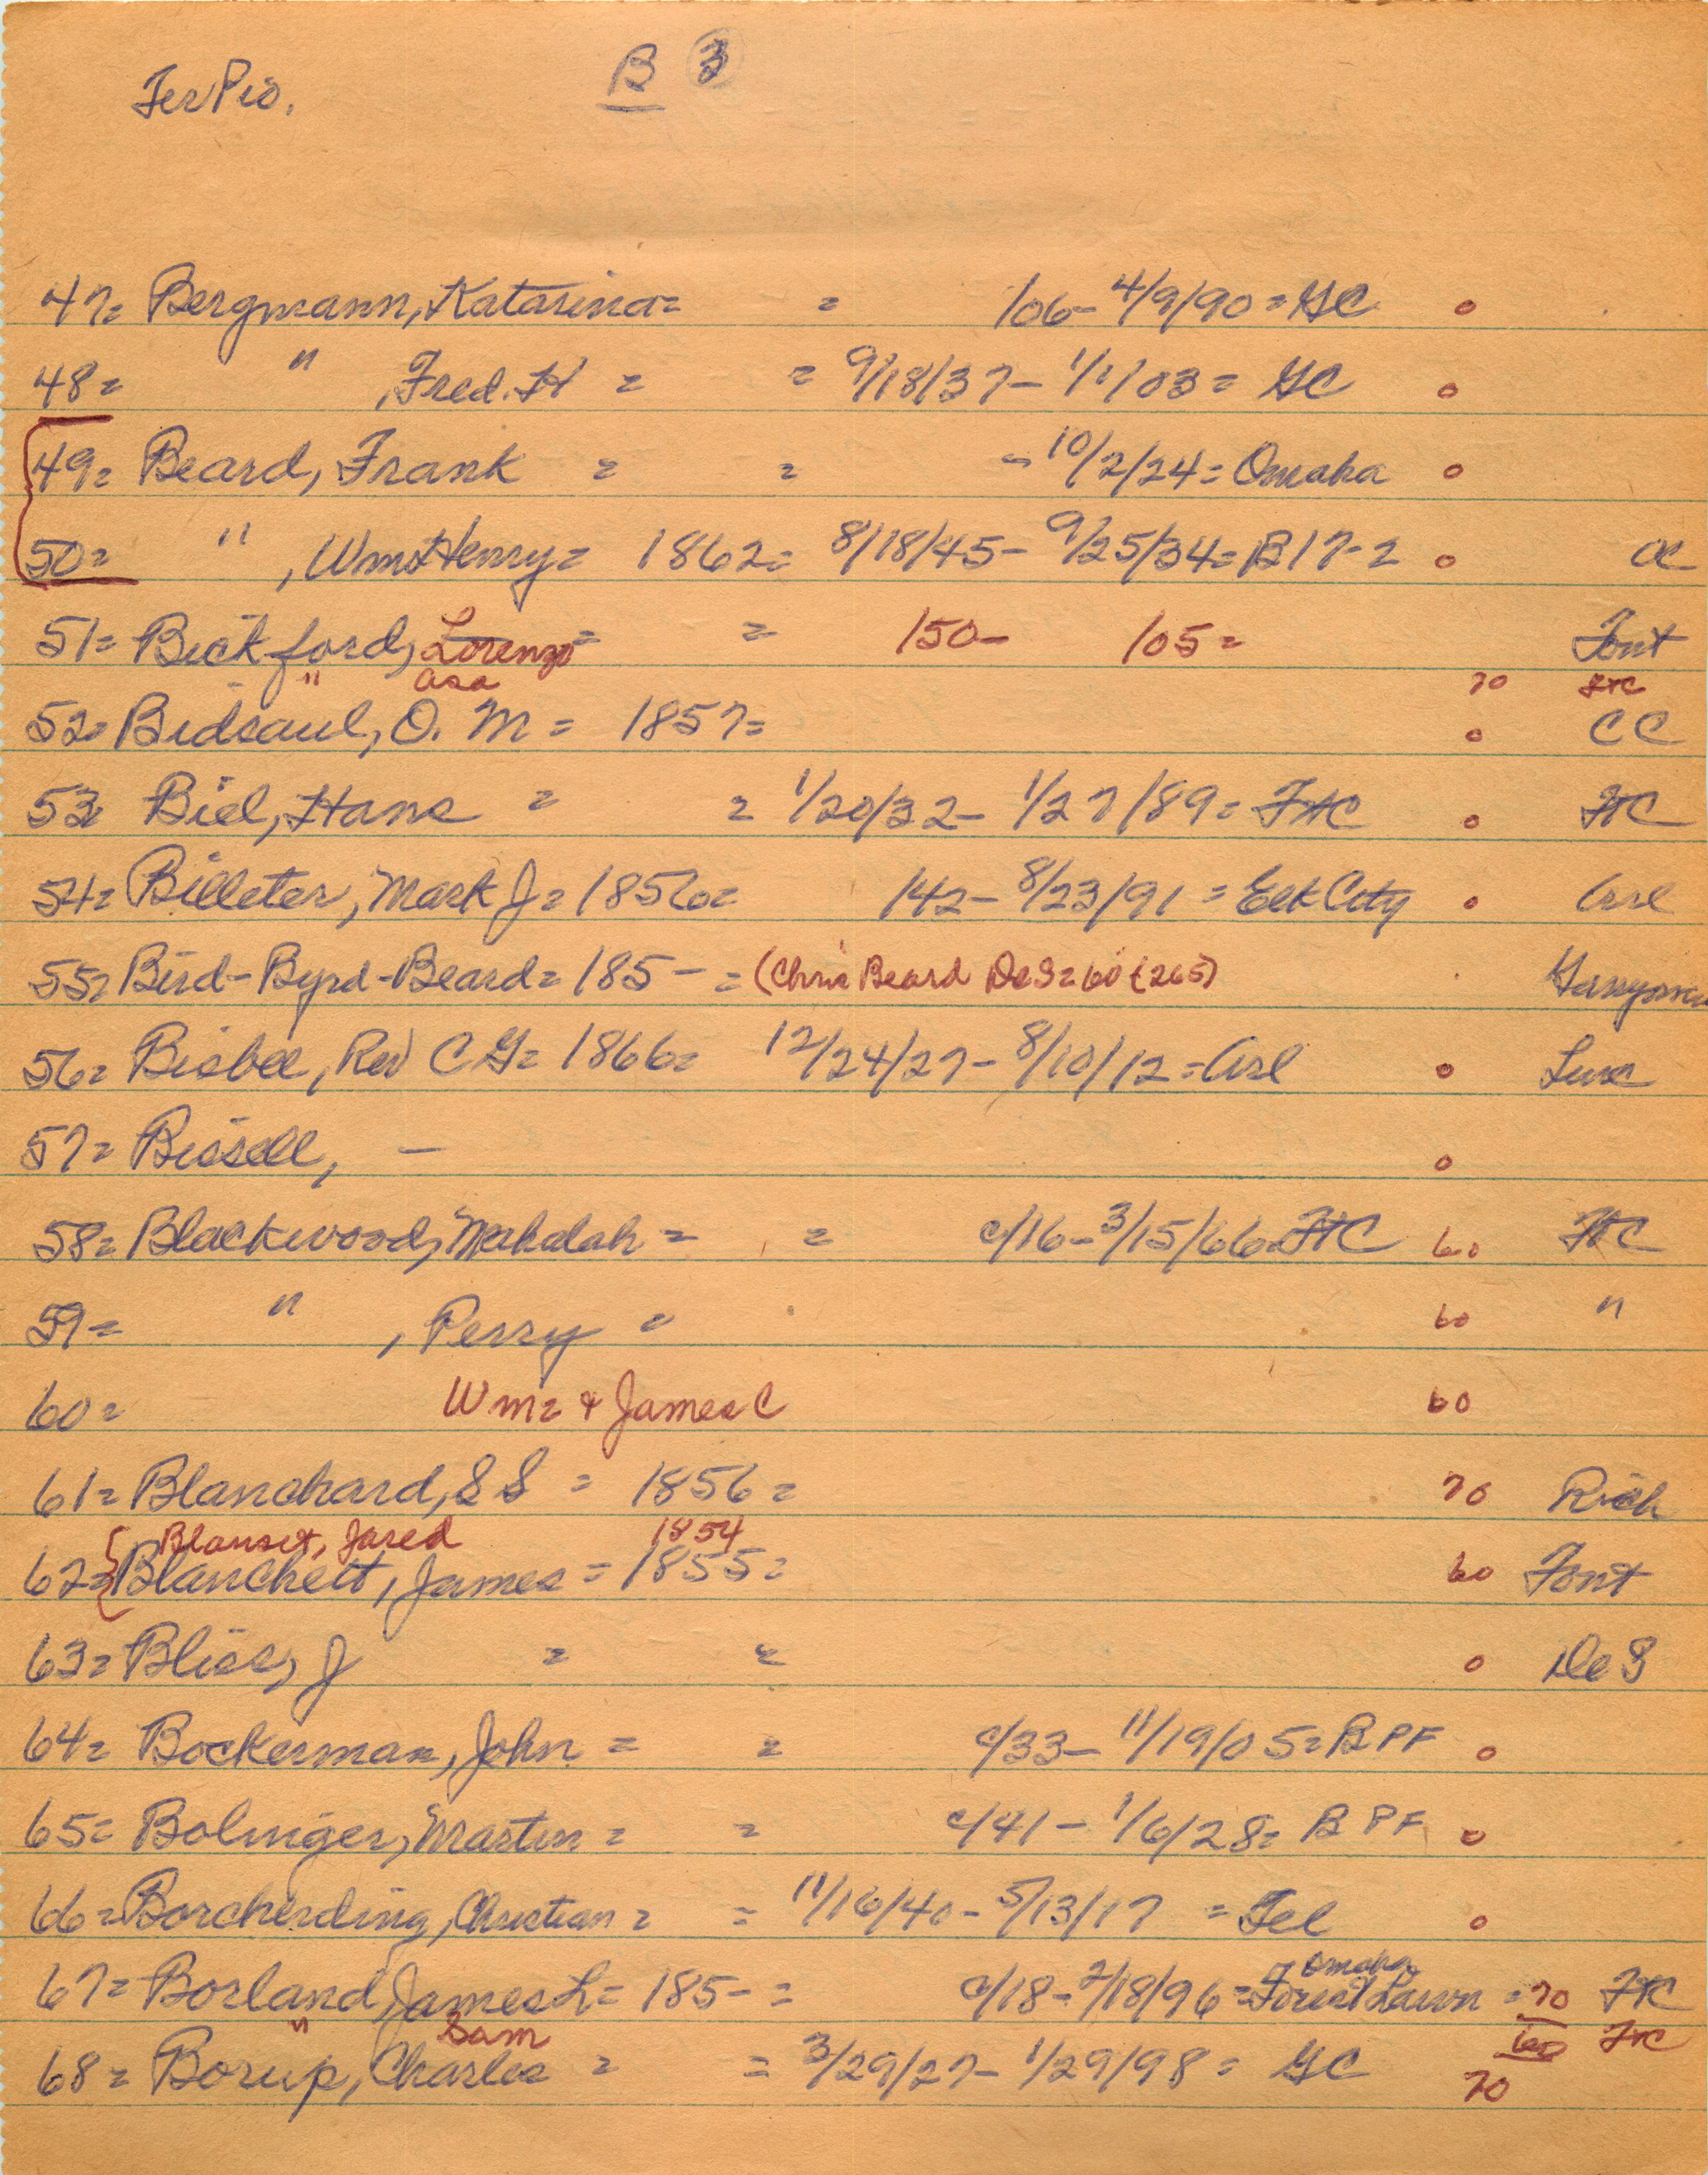 Ter Pio. B 3
47= Bergmann, Katarina= = 106- 4/9/90= GC o
48= " , Fred. H = = 9/18/37- 1/1/03= GC o
49= Beard, Frank = = - 10/2/24= Omaha o
50= " , Wm Henry= 1862= 8/18/45- 9/25/34= B17-2 o OC
51= Bickford, Lorenzo= = 150- 105= Font
" Asa 70 FtC
52= Bidsaul, O. M = 1857= o CC
53= Biel, Hans = = 1/20/32- 1/27/89= FtC o FtC
54= Billeter, Mark J= 1856= 142- 8/23/91 = Elk City o Arl
55= Bird-Byrd-Beard= 185- = (Chris Beard DeS=60 (265)
56= Bisbee, Rev C G= 1866= 12/24/27- 8/10/12= Arl o
57= Bissell, - o
58= Blackwood, Mahalah = = c/16- 3/15/66= FtC 60 FtC
59= " , Perry = 60 "
60= Wm= & James C 60
61= Blanchard, S S = 1856= 70 Rich
Blanset, Jared 1854
62= Blanchett, James = 1855= 60 Font
63= Bliss, J = = o De S
64= Bockerman, John = = c/33- 11/19/05= B PF o
65= Bolinger, Martin = = c/41- 1/6/28= B PF o
66= Borcherding, Christian = = 11/16/40- 5/13/17 = Tel o
Omaha
67= Borland, James L= 185- = c/18- 2/18/96= Forest Lawn = 70 FtC
" Sam 60 FtC
68= Borup, Charles = = 3/29/27- 1/29/98= GC 70